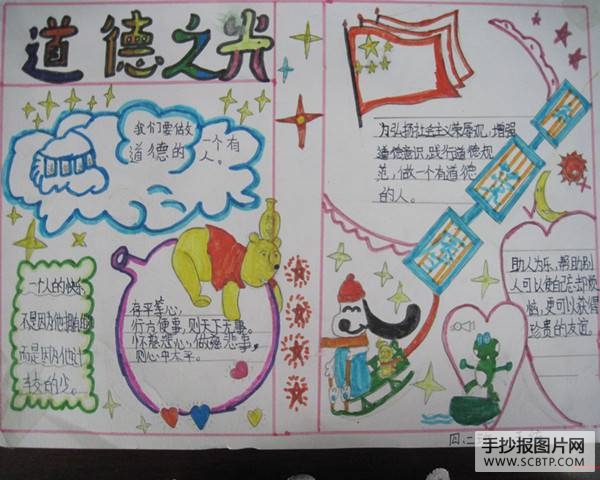 道德之光
我们要做
一个有
道德的
人。
一个人的快乐
不是因为他拥有
而是因为他计
较的少。
存平等心;
行方便事,则天下无事。
怀慈悲心,做慈悲事,
则心中太平。
为弘扬社会主义荣辱观,增强
道德意识,践行道德规
范,做一个有道德
的人。
助人为乐,帮助别
人可以使自己忘却烦
恼,更可以获得
珍贵的友谊。
四二
手抄报图片网
WWW.SCBTP.COM